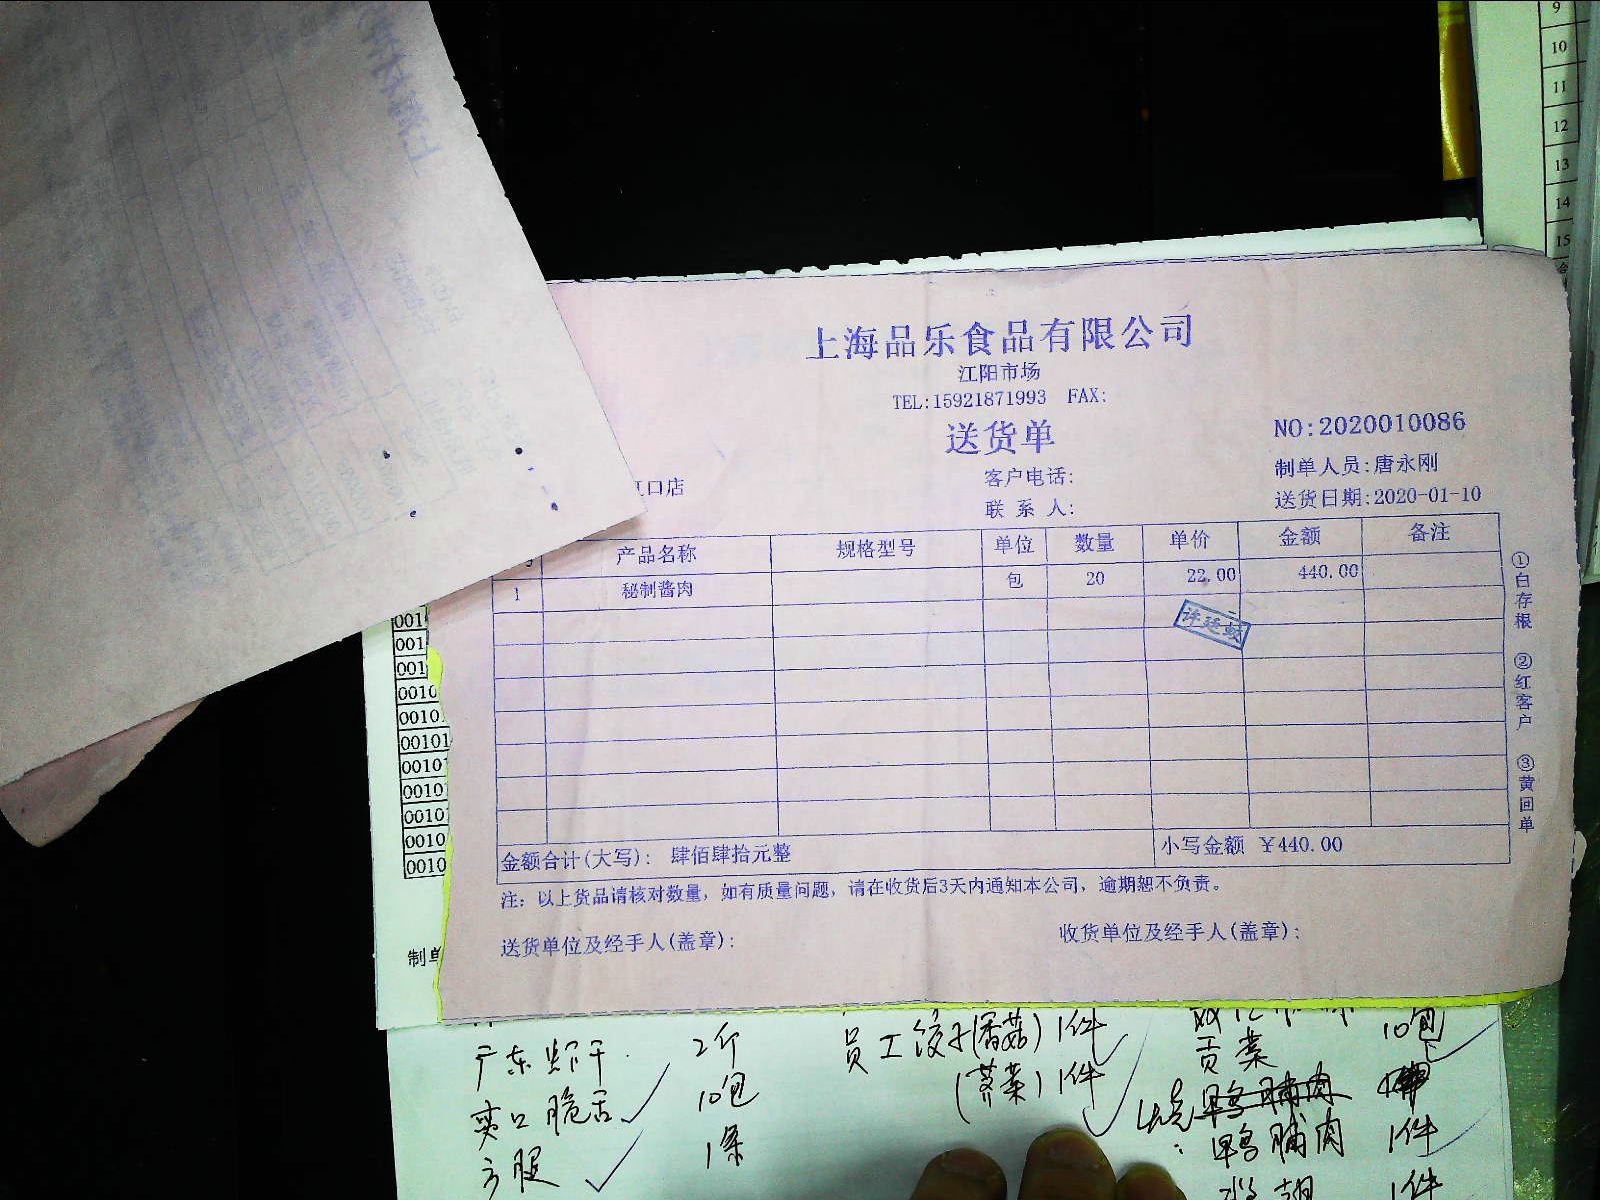 9
10
11
12
13
14
15
上海品乐食品有限公司
江阳市场
TEL:15921871993 FAX:
送货单
NO:2020010086
客户电话:
制单人员:唐永刚
口店
联 系 人:
送货日期:2020-01-10
产品名称 规格型号 单位 数量 单价 金额 备注
1 秘制酱肉 包 20 22.00 440.00
①白存根 ②红客户 ③黄回单
金额合计(大写): 肆佰肆拾元整 小写金额 ¥440.00
注: 以上货品请核对数量, 如有质量问题, 请在收货后3天内通知本公司, 逾期恕不负责。
送货单位及经手人(盖章): 收货单位及经手人(盖章):
001
001
001
0010
0010
00101
0010
0010
0010
0010
0010
制单
广东虾干 2斤 员工饺子(香菇) 1件 贡菜 10包
爽口脆舌 10包 (荠菜) 1件
方腿 1条 鸭脯肉 1件
1件